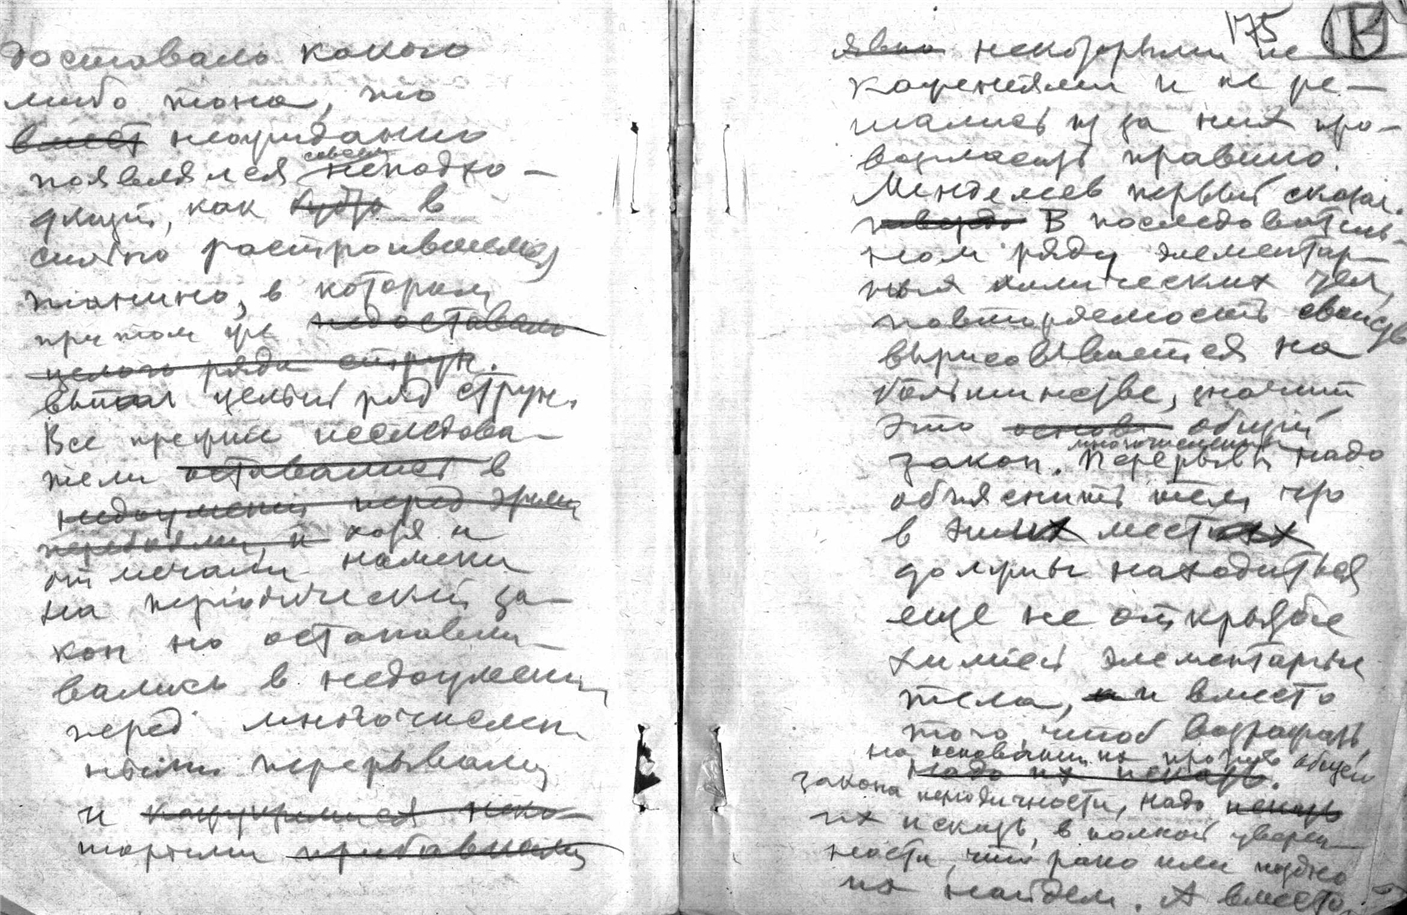 доставало какого
либо тона, то
вмест неожиданно
появлялся совсем неподхо-
дящий, как будто в
сильно расстроившемся
пианино, в котором
при том же недоставало
целого ряда струн.
выпал целый ряд струн.
Все прежние исследова-
тели оставались в
недоумении перед этими
перебоями, и хотя и
отмечали намеки
на периодический за-
кон но останавли-
вались в недоумении
перед многочислен-
ными перерывами
и кажущимися неко-
торыми прибавками
175
явно некоторыми не
решались из за них про-
возгласить правило.
Менделеев первый сказал.
твердо В последователь-
ном ряду элементар-
ных химических тел,
повторяемость свойств
вырисовывается на
большинстве, значит
это основа общий
закон. многочисленные Перерывы надо
объяснить тем, что
в этих местах
должны находиться
еще не открытые
химией элементарные
тела, и и вместо
того, чтоб возражать
на основании их против общего
надо их искать.
закона периодичности, надо искать
их искать, в полной уверен-
ности, что рано или поздно
их найдем. А вместо